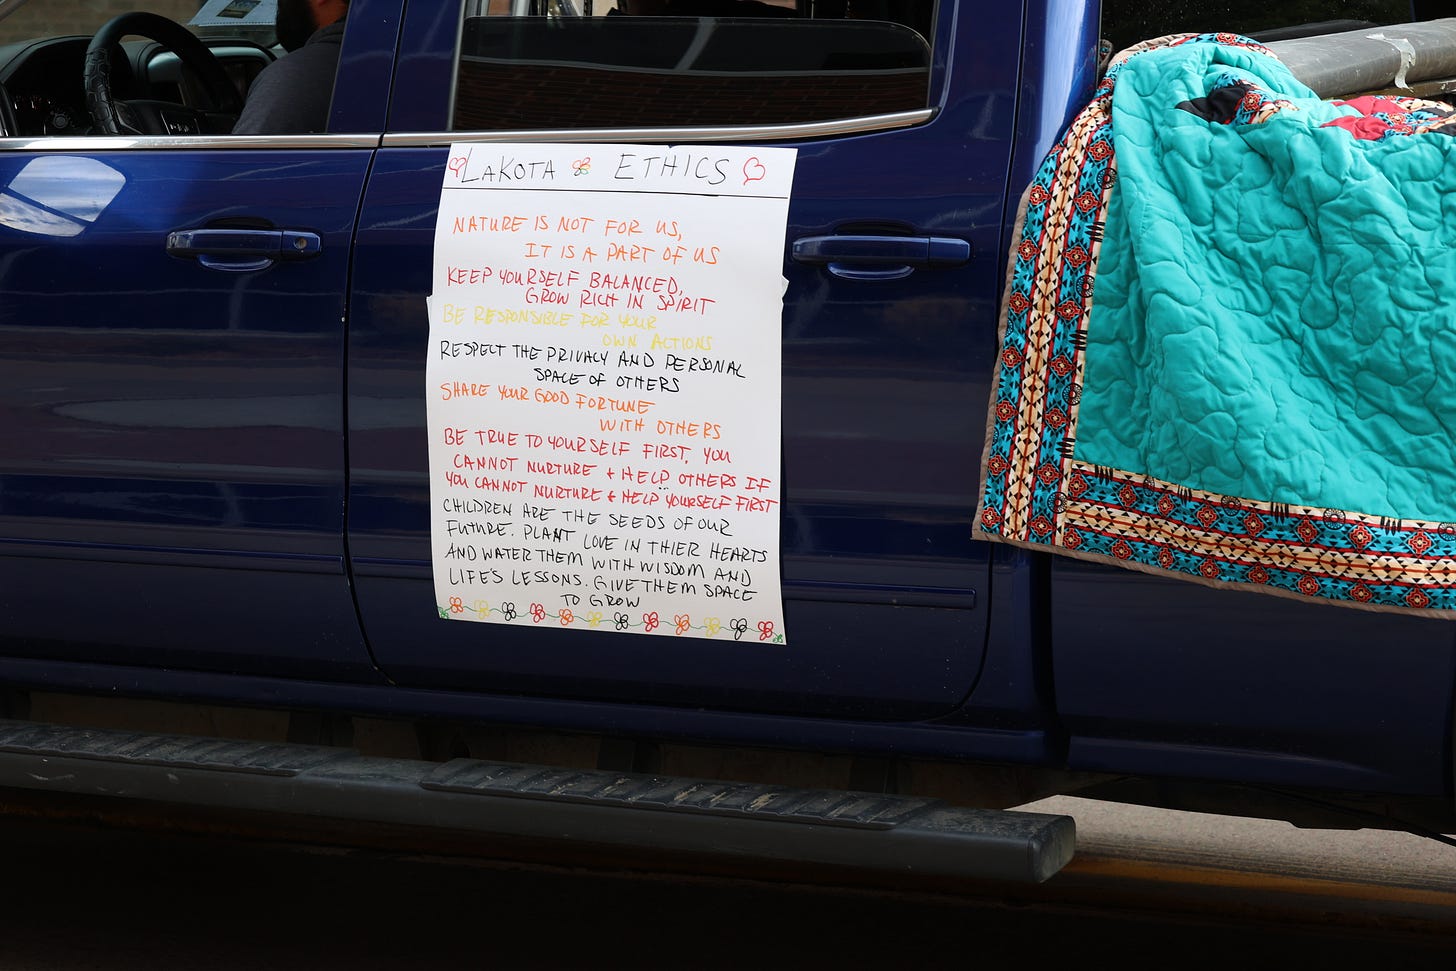 LAKOTA ETHICS
NATURE IS NOT FOR US,
IT IS A PART OF US
KEEP YOURSELF BALANCED,
GROW RICH IN SPIRIT
BE RESPONSIBLE FOR YOUR
OWN ACTIONS
RESPECT THE PRIVACY AND PERSONAL
SPACE OF OTHERS
SHARE YOUR GOOD FORTUNE
WITH OTHERS
BE TRUE TO YOURSELF FIRST. YOU
CANNOT NURTURE + HELP OTHERS IF
YOU CANNOT NURTURE + HELP YOURSELF FIRST
CHILDREN ARE THE SEEDS OF OUR
FUTURE. PLANT LOVE IN THIER HEARTS
AND WATER THEM WITH WISDOM AND
LIFE'S LESSONS. GIVE THEM SPACE
TO GROW